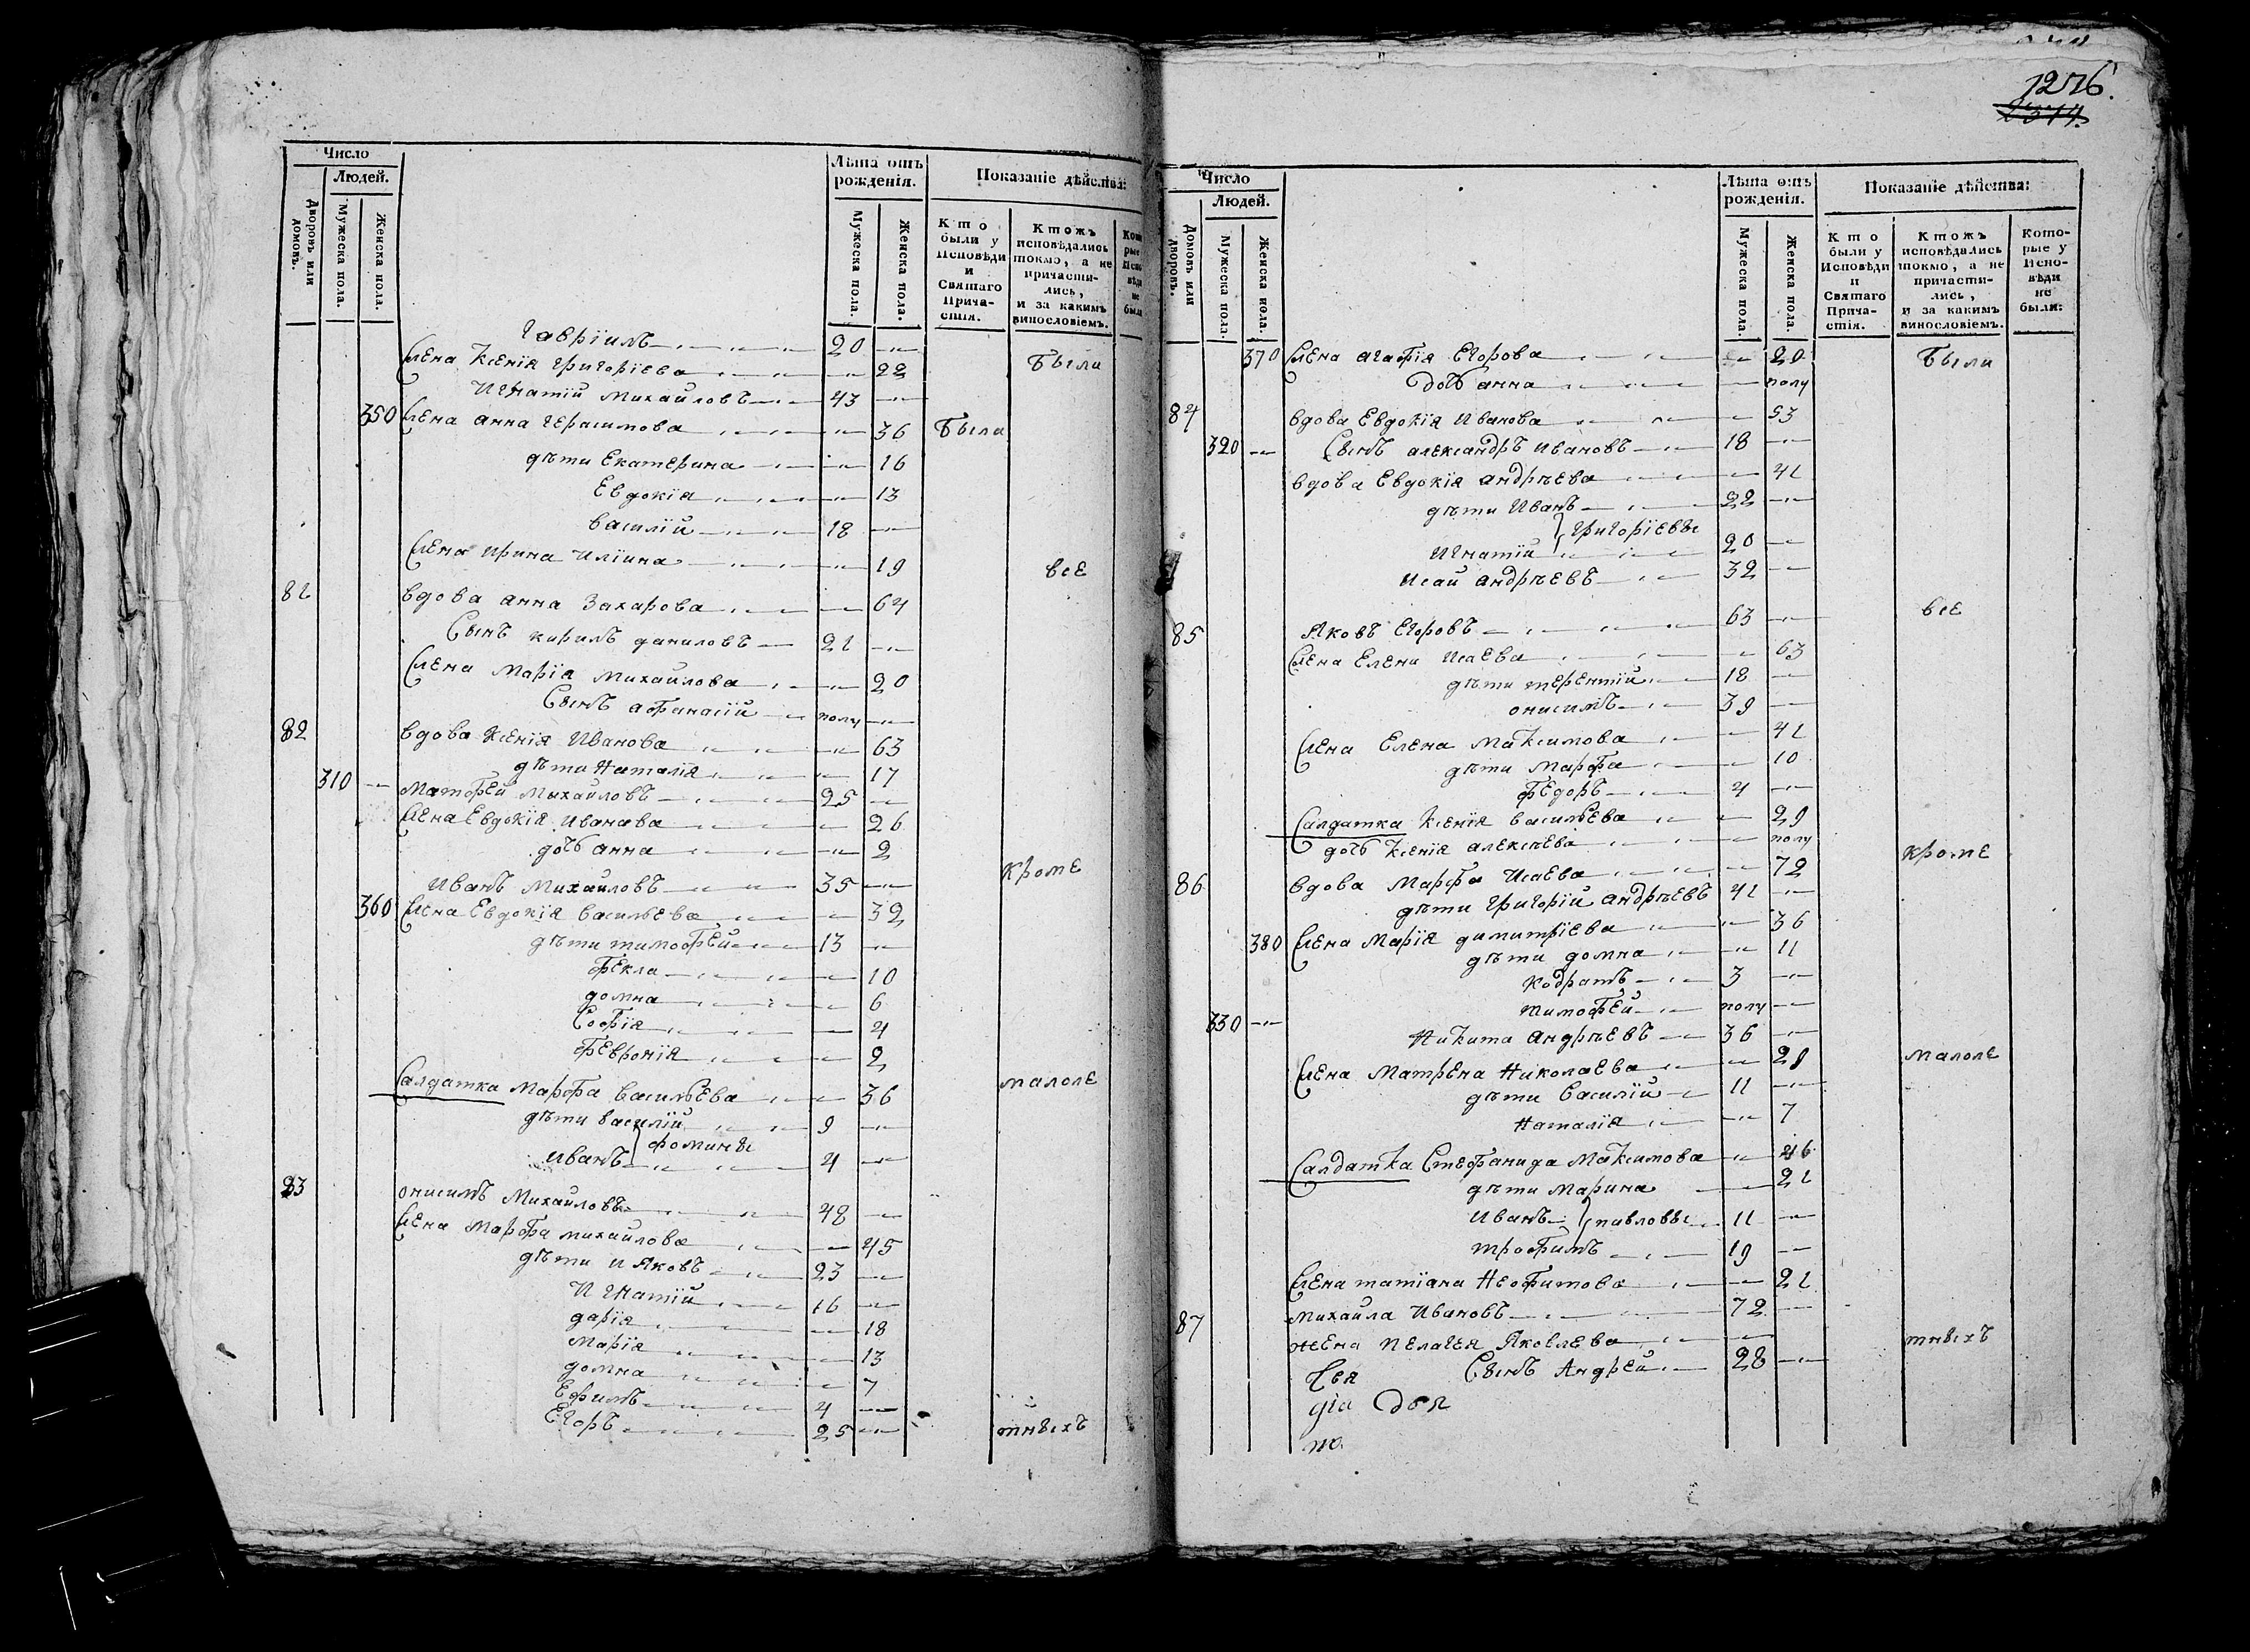 Число
Людей.
Дворовъ или домовъ.
Мужеска пола.
Женска пола.
Лѣта отъ рожденія.
Мужеска пола.
Женска пола.
Показаніе дѣйства:
Кто были у Исповѣди и Святаго Причастія.
Ктожъ исповѣдались токмо, а не причастились, и за какимъ винословіемъ.
Гавріилъ 20
жена Ксенія Григоріева 22 были
Игнатій Михайловъ 43
350 жена анна Герасимова 36 были
дѣти Екатерина 16
Евдокія 13
василій 18
жена Ирина Иліина 19 всѣ
81 вдова анна Захарова 64
Сынъ кирилъ даниловъ 21
жена Марія Михайлова 20
Сынъ афанасій полу
82 вдова Ксенія Иванова 63
дѣти Наталія 17
310 Матфей Михайловъ 25
жена Евдокія Иванава 26
дочь анна 2
Иванъ Михайловъ 35 кромѣ
360 жена Евдокія васильева 32
дѣти тимофей 13
фекла 10
домна 6
Софія 4
февронія 2
Салдатка Марфа васильева 36 малолѣ
дѣти василій 9
фомины
иванъ 4
83 онисимъ Михайловъ 48
жена Марфа михайлова 45
дѣти Яковъ 23
Игнатій 16
дарія 18
Марія 13
домна 7
Ефимъ 4
Егоръ 25 тныхъ
1276.
Число
Людей.
Домовъ или дворовъ.
Мужеска пола.
Женска пола.
Лѣта отъ рожденія.
Мужеска пола.
Женска пола.
Показаніе дѣйства:
Кто были у Исповѣди и Святаго Причастія.
Ктожъ исповѣдались токмо, а не причастились, и за какимъ винословіемъ.
Которые у Исповѣди не были:
370 жена агафія Егорова 20 были
дочь анна полу
84 вдова Евдокія Иванова 53
320 Сынъ александръ ивановъ 18
вдова Евдокія андрѣева 41
дѣти Иванъ 22
Григоріевы
Игнатій 20
Исай андрѣевъ 32
85 Яковъ Егоровъ 63 всѣ
жена Елена Исаева 63
дѣти терентій 18
онисимъ 39
жена Елена Максимова 41
дѣти Марфа 10
федоръ 4
Салдатка Ксенія васильева 29
дочь Ксенія алексѣева полу
86 вдова Марфа Исаева 72 кромѣ
дѣти Григорій андрѣевъ 41
380 жена Марія димитріева 36
дѣти домна 11
кодратъ 3
тимофей полу
330 Никита андрѣевъ 36
жена Матрена Николаева 29 малолѣ
дѣти Василій 11
Наталія 7
Салдатка Стефанида Максимова 46
дѣти Марина 21
Иванъ павловы 11
трофимъ 19
жена татіана Неофитова 21
87 михайла Ивановъ 72
жена пелагея Яковлева тныхъ
Сынъ Андрей 28